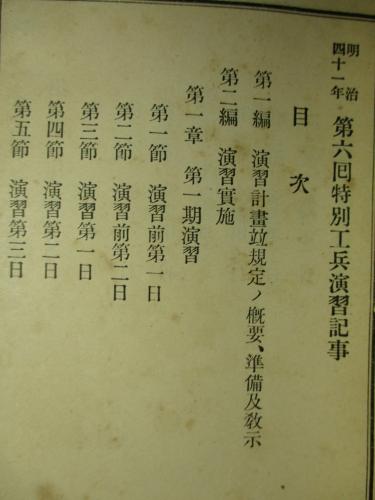 明治四十一年 第六囘特別工兵演習記事
目次
第一編 演習計畫竝規定ノ概要、準備及敎示
第二編 演習實施
第一章 第一期演習
第一節 演習前第一日
第二節 演習前第二日
第三節 演習第一日
第四節 演習第二日
第五節 演習第三日